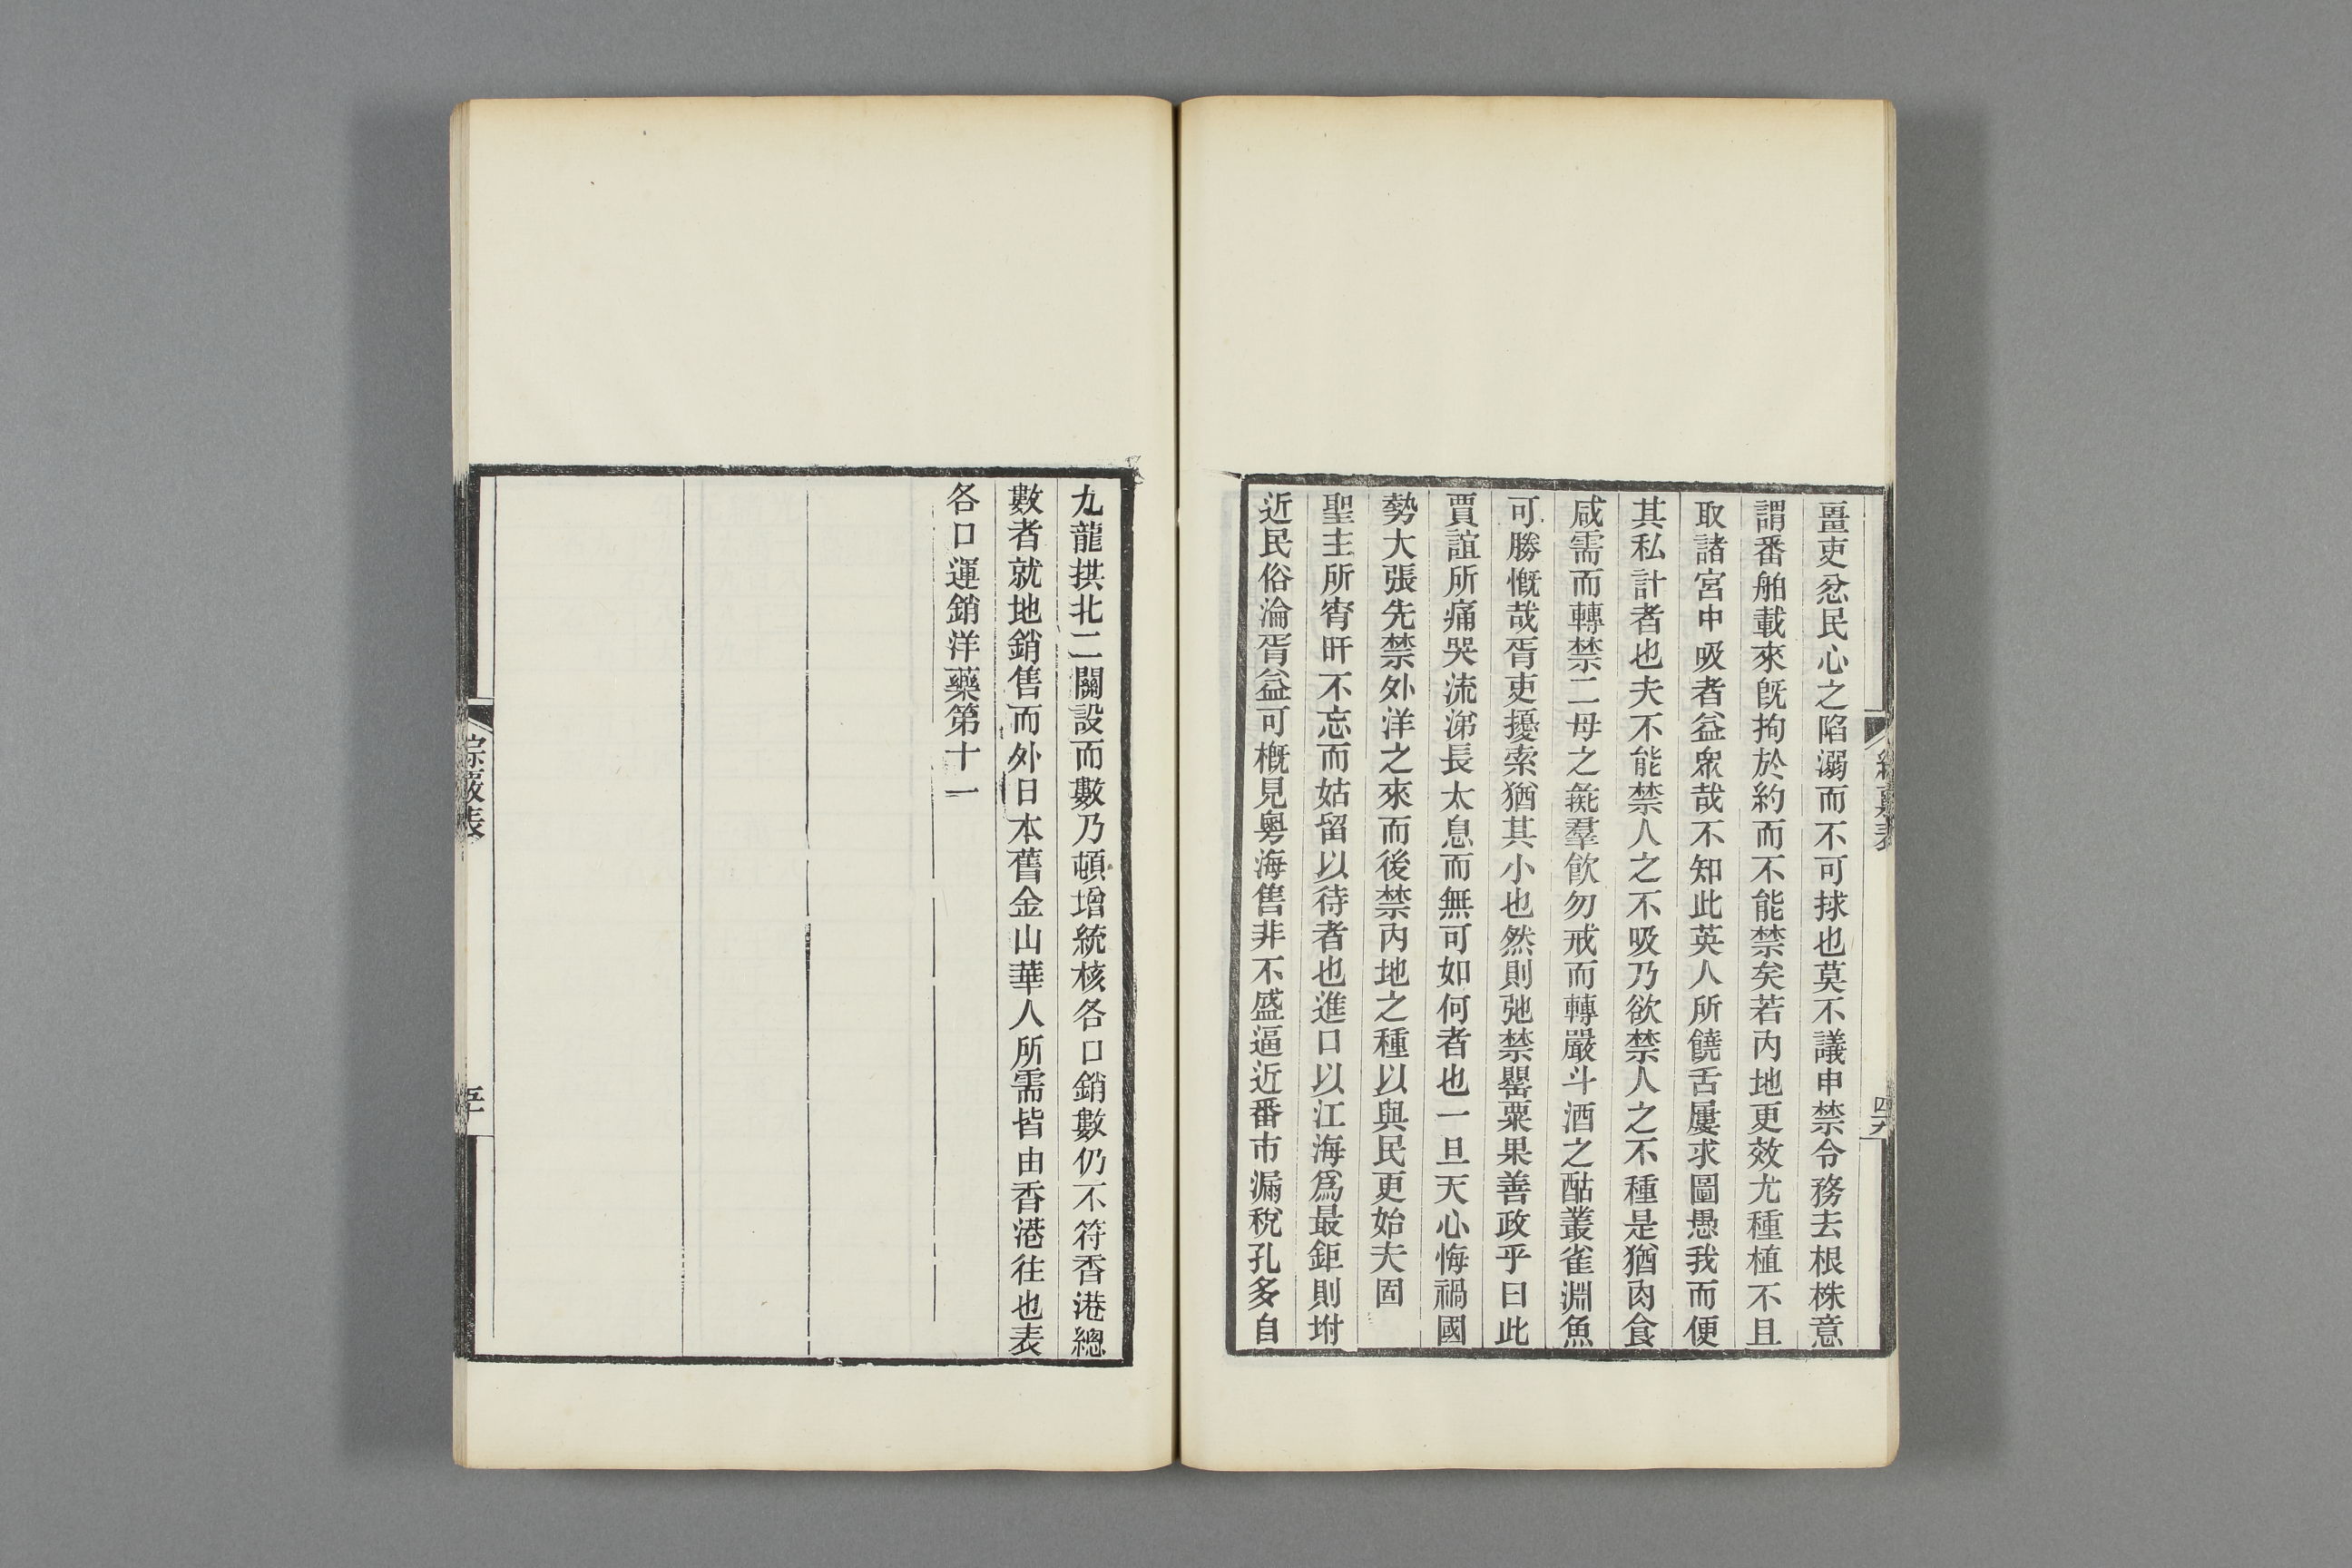 畺吏忿民心之陷溺而不可捄也莫不議申禁令務去根株意
謂番舶載來旣拘於約而不能禁矣若內地更效尤種植不且
取諸宮中吸者益衆哉不知此英人所饒舌屢求圖愚我而便
其私計者也夫不能禁人之不吸乃欲禁人之不種是猶肉食
咸需而轉禁二母之毓羣飮勿戒而轉嚴斗酒之酤叢雀淵魚
可勝慨哉胥吏擾索猶其小也然則弛禁罌粟果善政乎曰此
賈誼所痛哭流涕長太息而無可如何者也一旦天心悔禍國
勢大張先禁外洋之來而後禁內地之種以與民更始夫固
聖主所宵旰不忘而姑留以待者也進口以江海爲最鉅則坿
近民俗淪胥益可槪見粵海售非不盛逼近番市漏稅孔多自
四九
九龍拱北二關設而數乃頓增統核各口銷數仍不符香港總
數者就地銷售而外日本舊金山華人所需皆由香港往也表
各口運銷洋藥第十一
綜覈表
五十